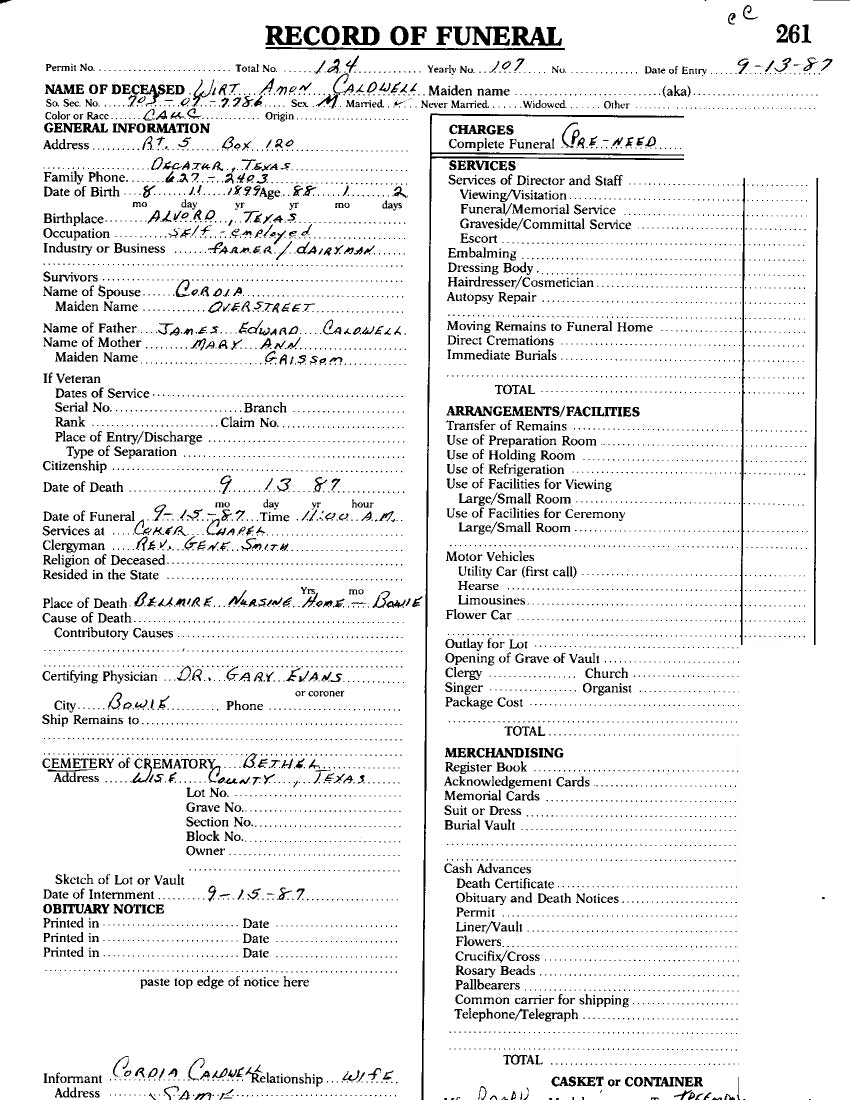 cc
RECORD OF FUNERAL 261
Permit No. Total No. 124 Yearly No. 107 No. Date of Entry 9-13-87
NAME OF DECEASED WIRT AMON CALDWELL Maiden name (aka)
So. Sec. No. 703-07-7786 Sex M Married ✓ Never Married Widowed Other
Color or Race CAUC Origin
GENERAL INFORMATION
Address RT. 5 BOX 120
DECATUR, TEXAS
Family Phone 627-2403
Date of Birth 8 11 1899 Age 88 1 2
mo day yr yr mo days
Birthplace ALVORD, TEXAS
Occupation SELF-employed
Industry or Business FARMER/DAIRYMAN
Survivors
Name of Spouse CORDIA
Maiden Name OVERSTREET
Name of Father JAMES EDWARD CALDWELL
Name of Mother MARY ANN
Maiden Name GRISSOM
If Veteran
Dates of Service
Serial No. Branch
Rank Claim No.
Place of Entry/Discharge
Type of Separation
Citizenship
Date of Death 9 13 87
mo day yr hour
Date of Funeral 9-15-87 Time 11:00 A.M.
Services at COKER CHAPEL
Clergyman REV. GENE SMITH
Religion of Deceased
Resided in the State
Yrs mo
Place of Death BELLMIRE NURSING HOME - BOWIE
Cause of Death
Contributory Causes
Certifying Physician DR. GARY EVANS
or coroner
City BOWIE Phone
Ship Remains to
CEMETERY of CREMATORY BETHEL
Address WISE COUNTY, TEXAS
Lot No.
Grave No.
Section No.
Block No.
Owner
Sketch of Lot or Vault
Date of Internment 9-15-87
OBITUARY NOTICE
Printed in Date
Printed in Date
Printed in Date
paste top edge of notice here
Informant CORDIA CALDWELL Relationship WIFE
Address SAME
CHARGES
Complete Funeral PRE-NEED
SERVICES
Services of Director and Staff
Viewing/Visitation
Funeral/Memorial Service
Graveside/Committal Service
Escort
Embalming
Dressing Body
Hairdresser/Cosmetician
Autopsy Repair
Moving Remains to Funeral Home
Direct Cremations
Immediate Burials
TOTAL
ARRANGEMENTS/FACILITIES
Transfer of Remains
Use of Preparation Room
Use of Holding Room
Use of Refrigeration
Use of Facilities for Viewing
Large/Small Room
Use of Facilities for Ceremony
Large/Small Room
Motor Vehicles
Utility Car (first call)
Hearse
Limousines
Flower Car
Outlay for Lot
Opening of Grave of Vault
Clergy Church
Singer Organist
Package Cost
TOTAL
MERCHANDISING
Register Book
Acknowledgement Cards
Memorial Cards
Suit or Dress
Burial Vault
Cash Advances
Death Certificate
Obituary and Death Notices
Permit
Liner/Vault
Flowers
Crucifix/Cross
Rosary Beads
Pallbearers
Common carrier for shipping
Telephone/Telegraph
TOTAL
CASKET or CONTAINER